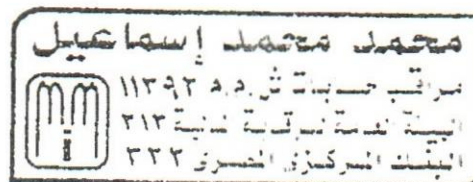 محمد محمد إسماعيل
مراقب حسابات س.م.م ١١٣٩٣
الهيئة العامة للرقابة المالية ٣١٣
البنك المركزى المصرى ٣٣٣